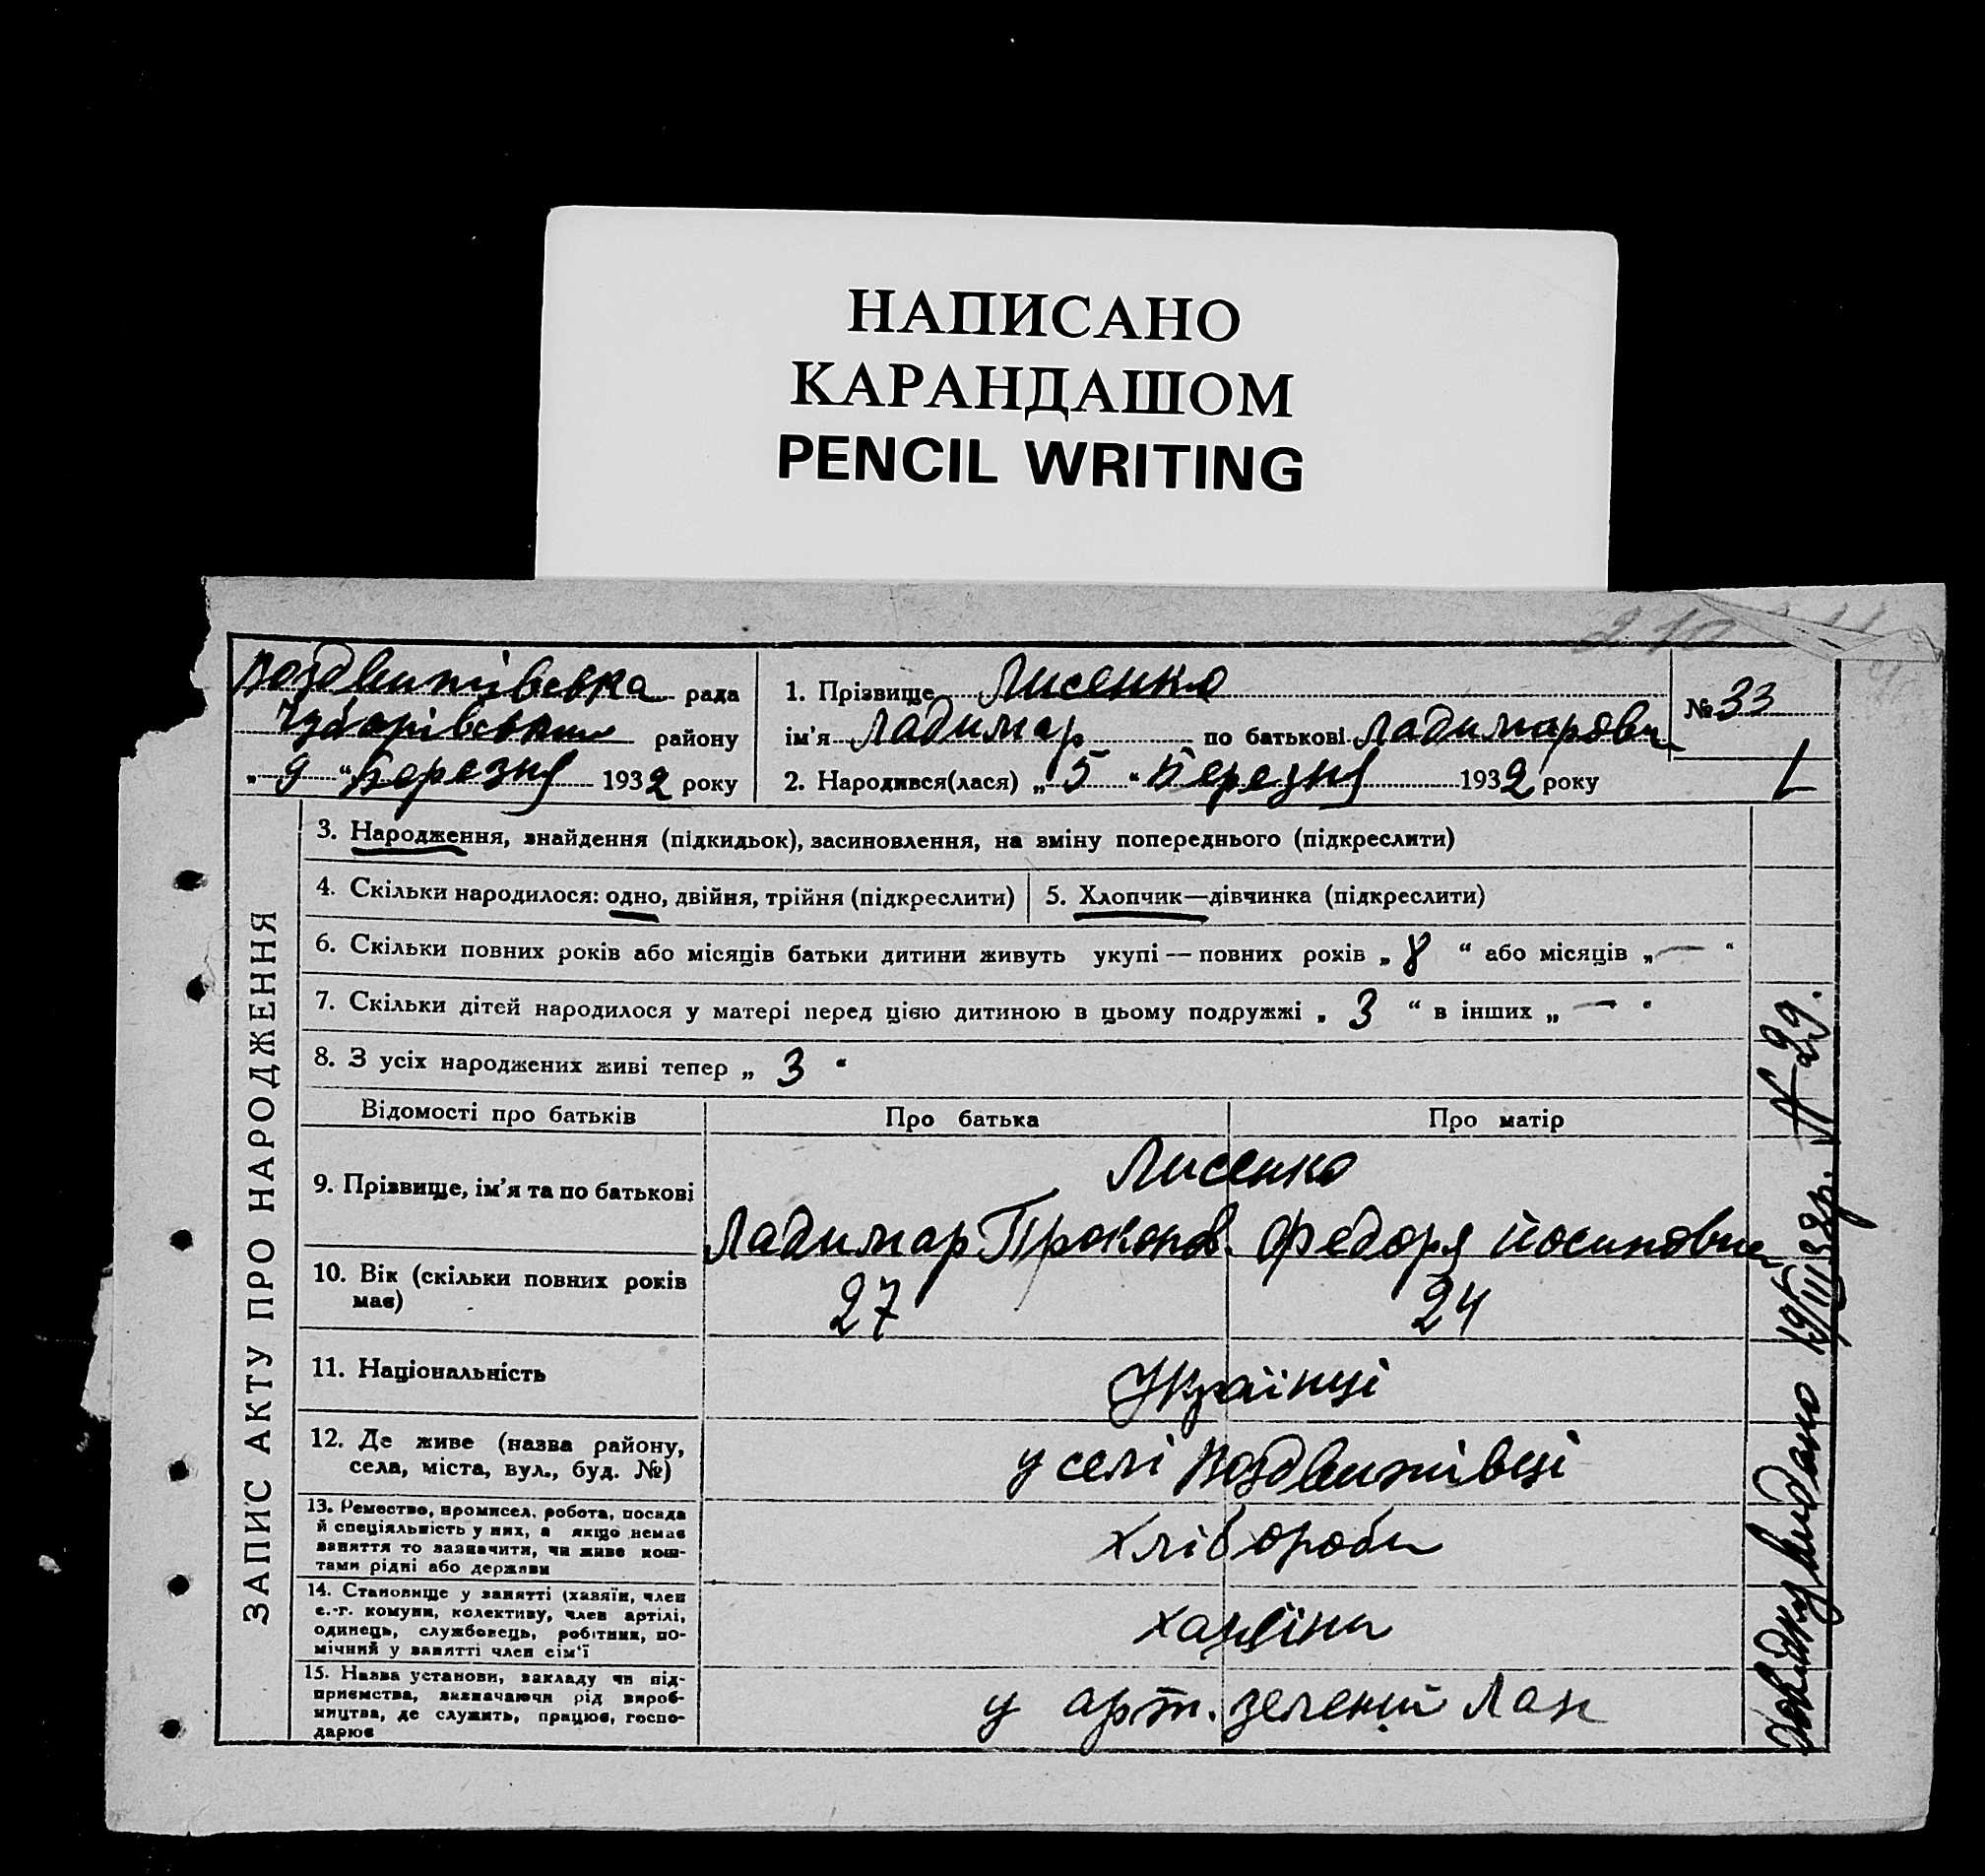 НАПИСАНО
КАРАНДАШОМ
PENCIL WRITING
210
Воздвижівська рада
району
„ 9 “ Березня 1932 року
1. Прізвище Лисенко
ім'я Ладимар по батькові Ладимирович
2. Народився(лася) „ 5 “ Березня 1932 року
№ 33
ЗАПИС АКТУ ПРО НАРОДЖЕННЯ
3. Народження, знайдення (підкидьок), засиновлення, на зміну попереднього (підкреслити)
4. Скільки народилося: одно, двійня, трійня (підкреслити)
5. Хлопчик—дівчинка (підкреслити)
6. Скільки повних років або місяців батьки дитини живуть укупі — повних років „ 8 “ або місяців „ — “
7. Скільки дітей народилося у матері перед цією дитиною в цьому подружжі „ 3 “ в інших „ — “
8. З усіх народжених живі тепер „ 3 “
Відомості про батьків Про батька Про матір
9. Прізвище, ім'я та по батькові
Лисенко
Ладимар Прокопов. Федоря Йосиповна
10. Вік (скільки повних років
має)
27 24
11. Національність
Українці
12. Де живе (назва району,
села, міста, вул., буд. №)
у селі Воздвижівці
13. Ремество, промисел, робота, посада
й спеціяльність у них, а якщо немає
заняття то зазначити, чи живе кош-
тами рідні або держави
Хлібороби
14. Становище у занятті (хазяїн, член
с.-г. комуни, колективу, член артілі,
одинець, службовець, робітник, по-
мічний у занятті член сім'ї
хазяїни
15. Назва установи, закладу чи під-
приємства, визначаючи рід вироб-
ництва, де служить, працює, госпо-
дарює
у арт. зелений Лан
Довідку видано 19/III 32р. № 29.